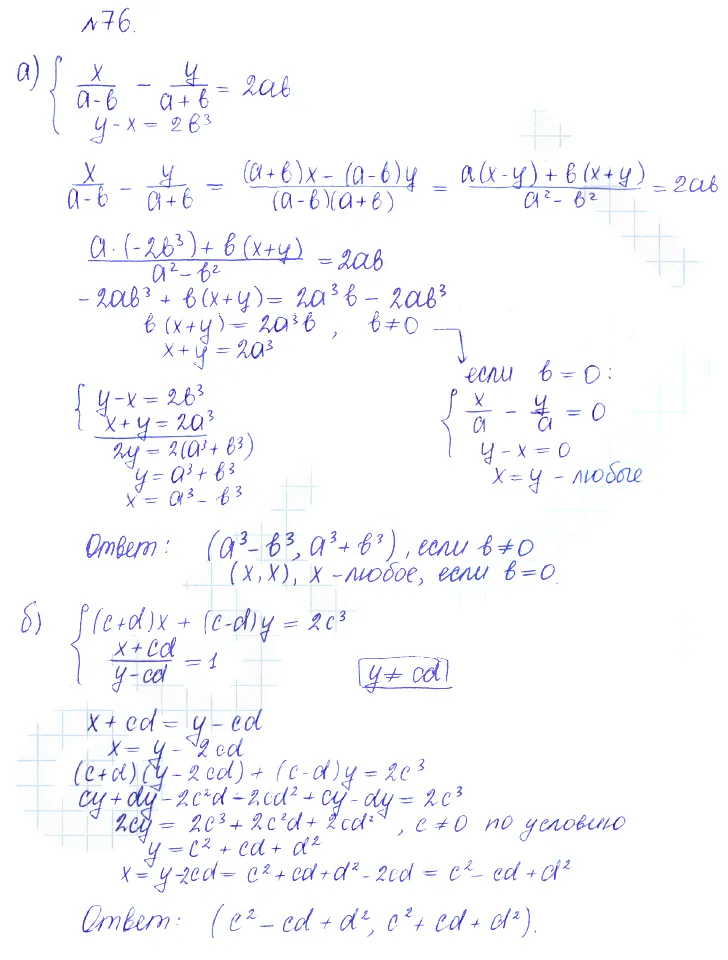 №76.
а) { x/(a-b) - y/(a+b) = 2ab
y-x = 2b³
x/(a-b) - y/(a+b) = ((a+b)x - (a-b)y)/((a-b)(a+b)) = (a(x-y) + b(x+y))/(a² - b²) = 2ab
(a·(-2b³) + b(x+y))/(a² - b²) = 2ab
-2ab³ + b(x+y) = 2a³b - 2ab³
b(x+y) = 2a³b, b≠0
x+y = 2a³
если b = 0:
{ x/a - y/a = 0
y-x = 0
x = y - любые
{ y-x = 2b³
x+y = 2a³
2y = 2(a³+b³)
y = a³+b³
x = a³-b³
Ответ: (a³-b³, a³+b³), если b≠0
(x, x), x - любое, если b = 0.
б) { (c+d)x + (c-d)y = 2c³
(x+cd)/(y-cd) = 1
y≠cd
x+cd = y-cd
x = y - 2cd
(c+d)(y-2cd) + (c-d)y = 2c³
cy+dy-2c²d-2cd²+cy-dy = 2c³
2cy = 2c³+2c²d+2cd², c≠0 по условию
y = c² + cd + d²
x = y-2cd = c² + cd + d² - 2cd = c² - cd + d²
Ответ: (c² - cd + d², c² + cd + d²).